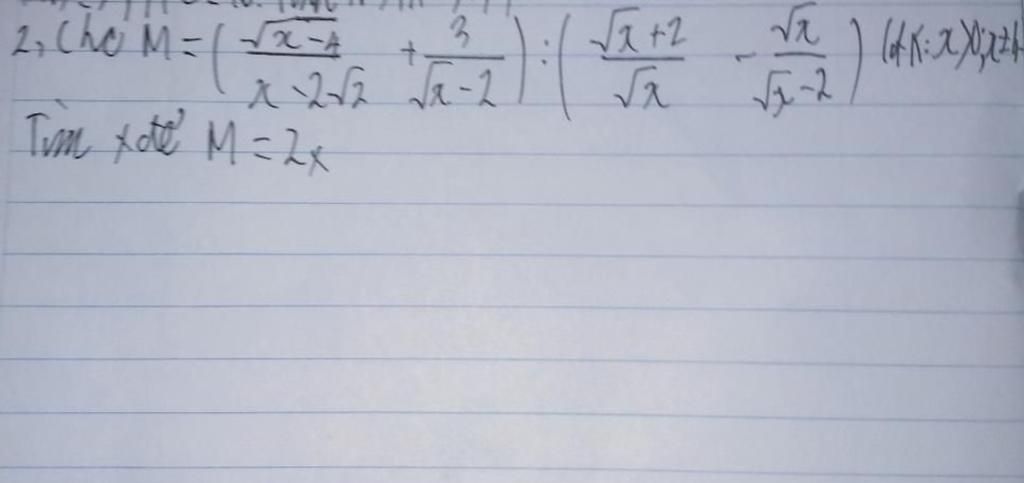 2, Cho M = ( \frac{\sqrt{x-4}}{x-2\sqrt{2}} + \frac{3}{\sqrt{x}-2} ) : ( \frac{\sqrt{x}+2}{\sqrt{x}} - \frac{\sqrt{x}}{\sqrt{x}-2} ) (đK: x>0; x≠4
Tìm x để M = 2x